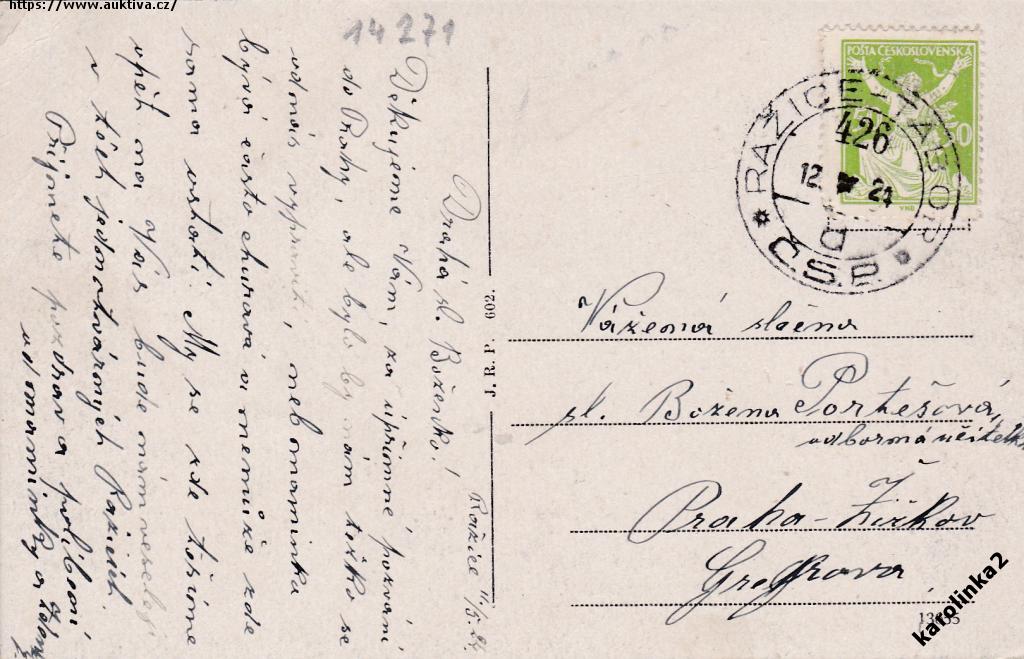 https://www.auktiva.cz/
14271
Ražice 11/5. 24.
Drahá sl. Boženko!
Děkujeme Vám, za upřímné pozvání
do Prahy, ale bylo by nám težko se
od nás vypraviti, neb maminka
bývá často churavá a nemůže zde
sama ostati. My se zde těšíme
opět na Vás bude nám veseleji
v těch jednotvárných Ražicích.
Přijmete pozdrav a políbení
od maminky a
J. R. P. 602.
POŠTA ČESKOSLOVENSKÁ
50
RAŽICE-TÁBOR
426
12. 24
Č.S.P.
Vážená slečna
sl. Božena Portešová,
odborná učitelka
Praha-Žižkov
Gregrova
karolinka2